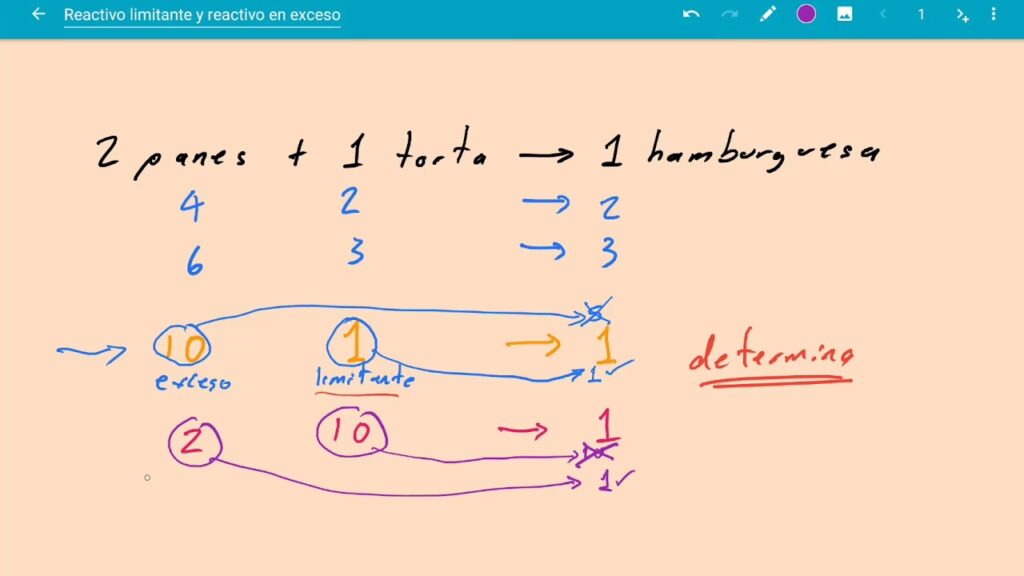 Reactivo limitante y reactivo en exceso 1
2 panes + 1 torta → 1 hamburguesa
4 2 → 2
6 3 → 3
5
→ 10 1 → 1
exceso limitante 1 ✓
determina
2 10 → 1
10
1 ✓